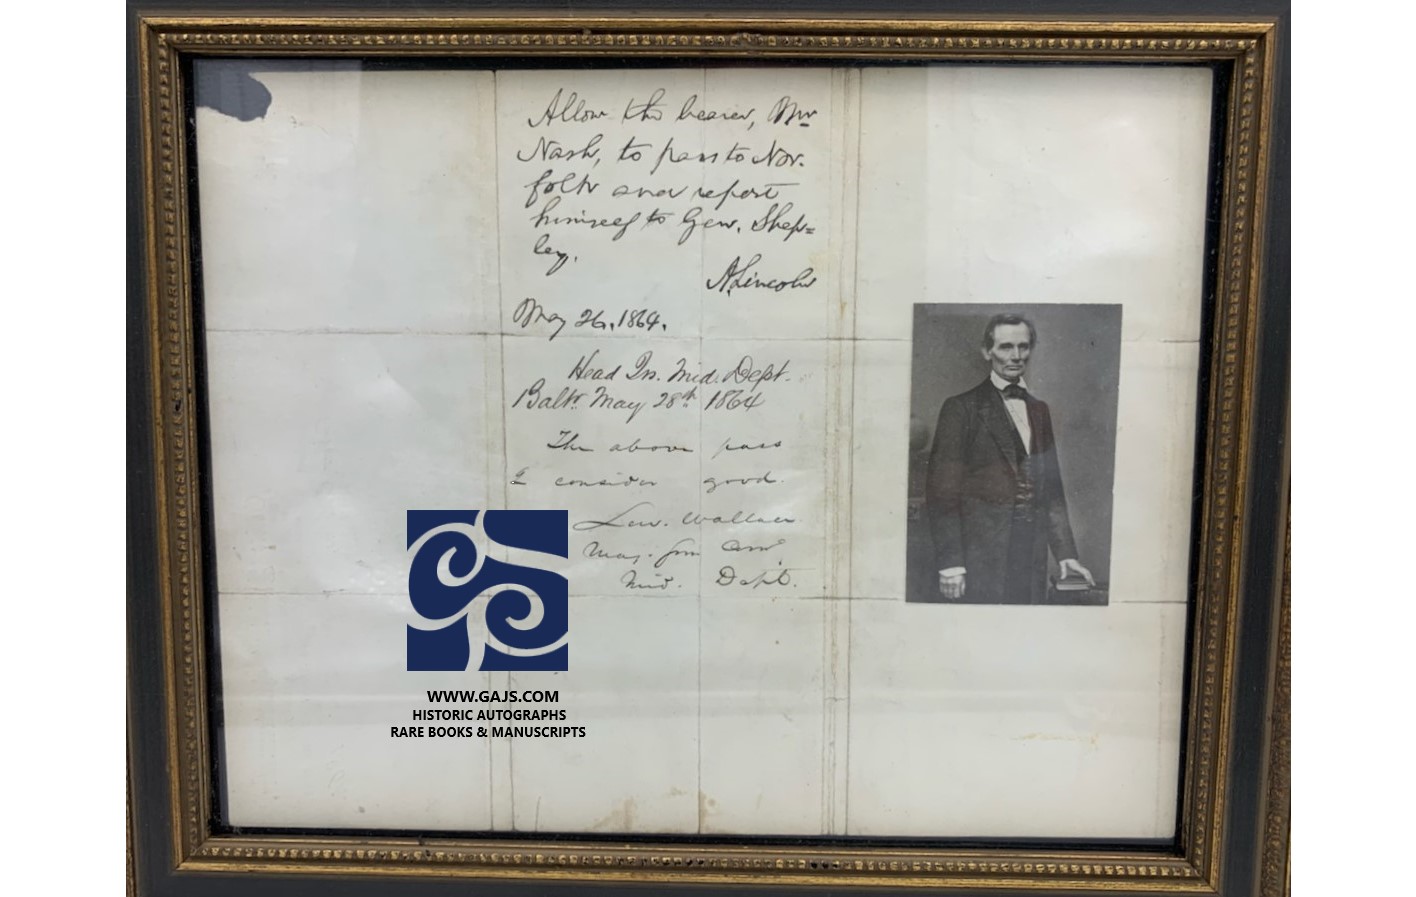 Allow the bearer, Mr
Nash, to pass to Nor.
folk and report
himself to Gen. Shep=
ley.
A. Lincoln
May 26, 1864.
Head Qrs. Mid. Dept.
Balto. May 28th 1864
The above pass
I consider good.
Lew. Wallace
Maj. Gen Com'
Mid. Dept.
WWW.GAJS.COM
HISTORIC AUTOGRAPHS
RARE BOOKS & MANUSCRIPTS